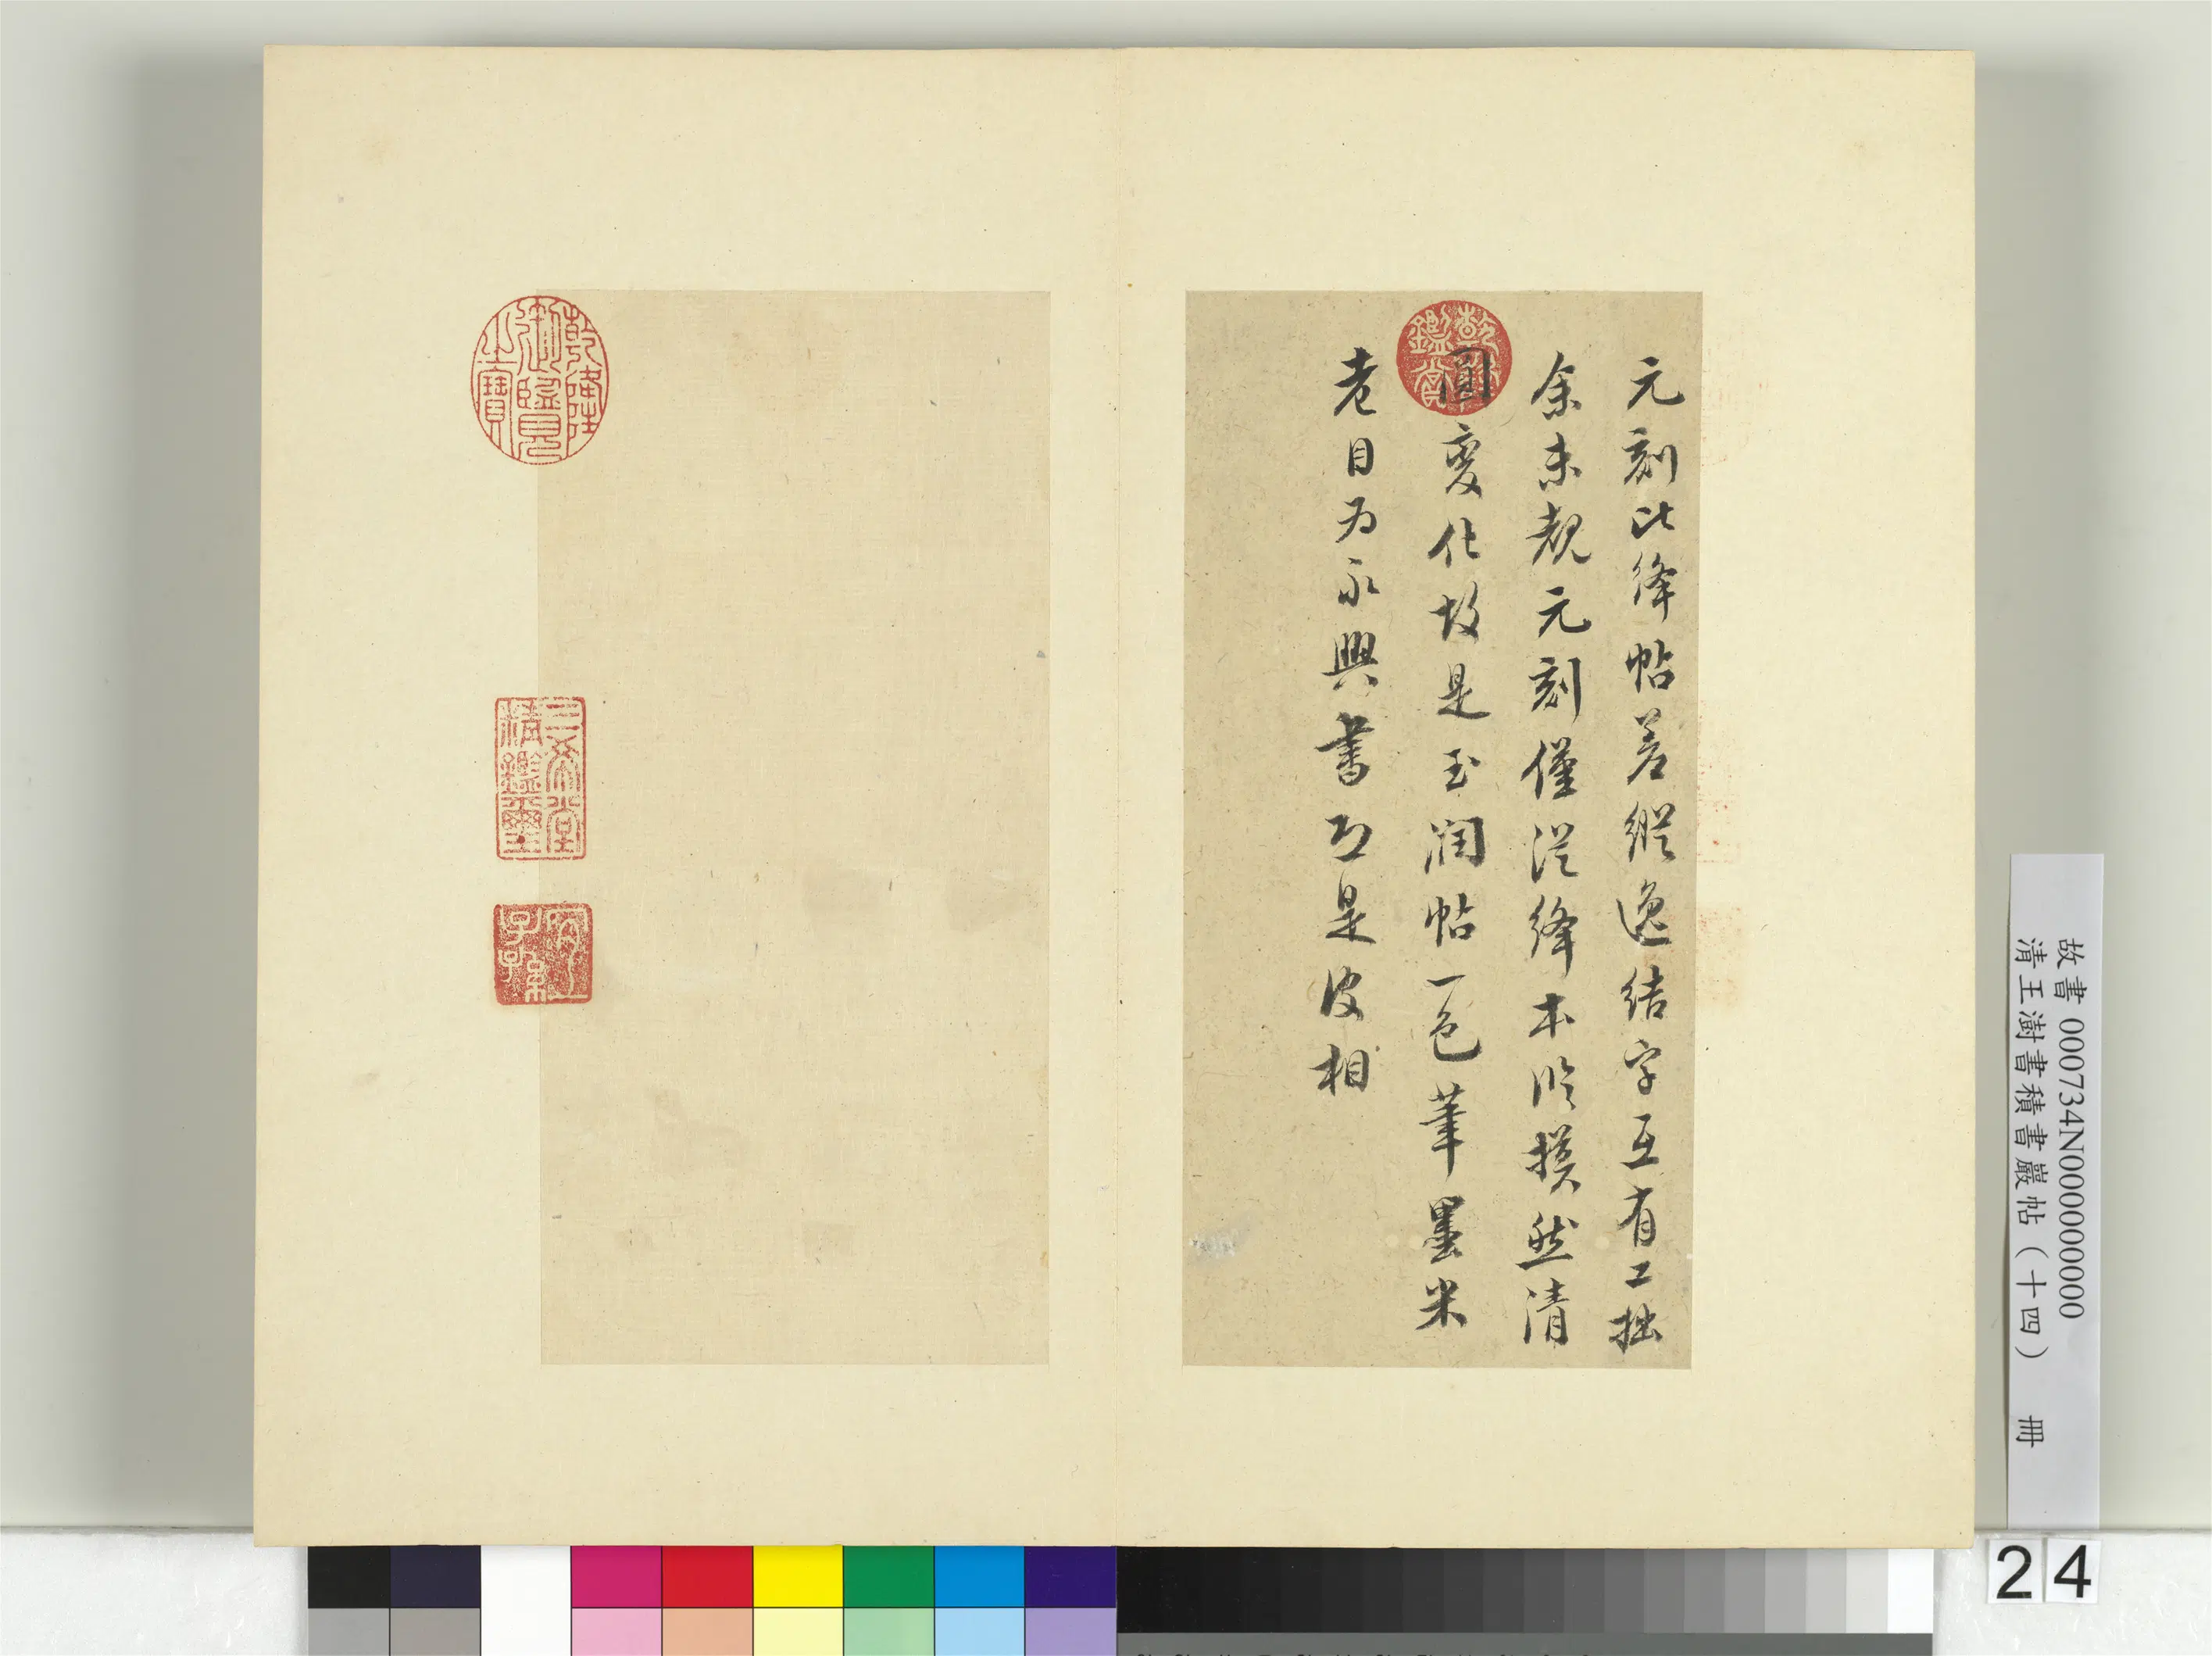 元刻比絳帖差縱逸結字互有工拙
余未覩元刻僅從絳本臨摸然清
圓變化故是玉潤帖一色筆墨米
老目為永興書正是皮相
乾隆鑑賞
乾隆御覽之寶
三希堂精鑑璽
宜子孫
故書 000734N000000000
清王澍書積書巖帖（十四） 冊
24